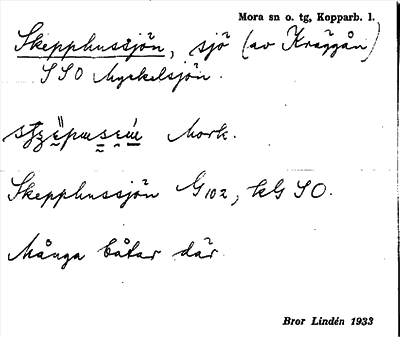 Mora sn o. tg, Kopparb. l.
Skepphussjön, sjö (av Kräggån)
SSO Myckelsjön.
Mork.
Skepphussjön G102, kG SO.
Många båtar där
Bror Lindén 1933